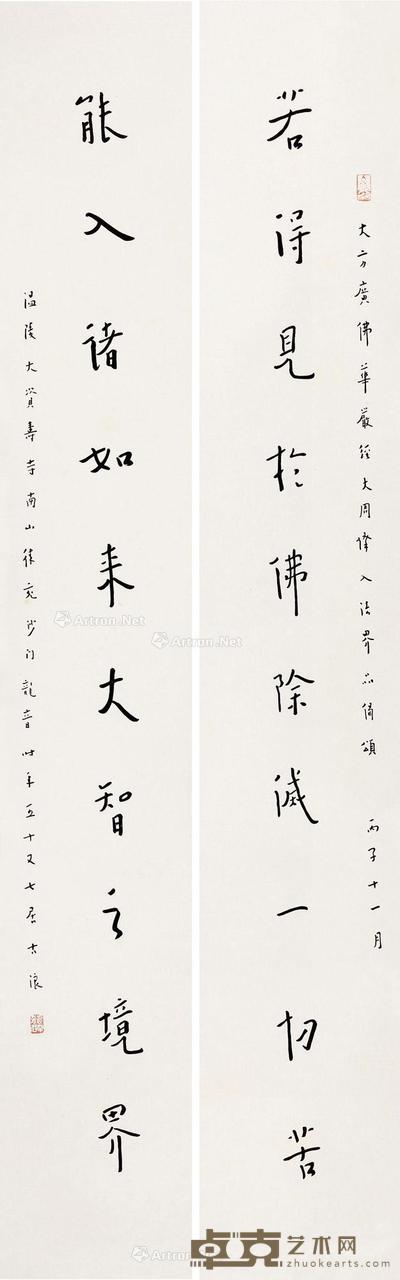 大方廣佛華嚴經大周譯入法界品偈頌 丙子十一月
若得見於佛除滅一切苦
能入諸如來大智之境界
溫陵大資壽寺南山律宛沙門龍音時年五十又七居古浪
Artron.Net
Artron.Net
Artron.Net
Artron.Net
卓克艺术网
zhuokearts.com